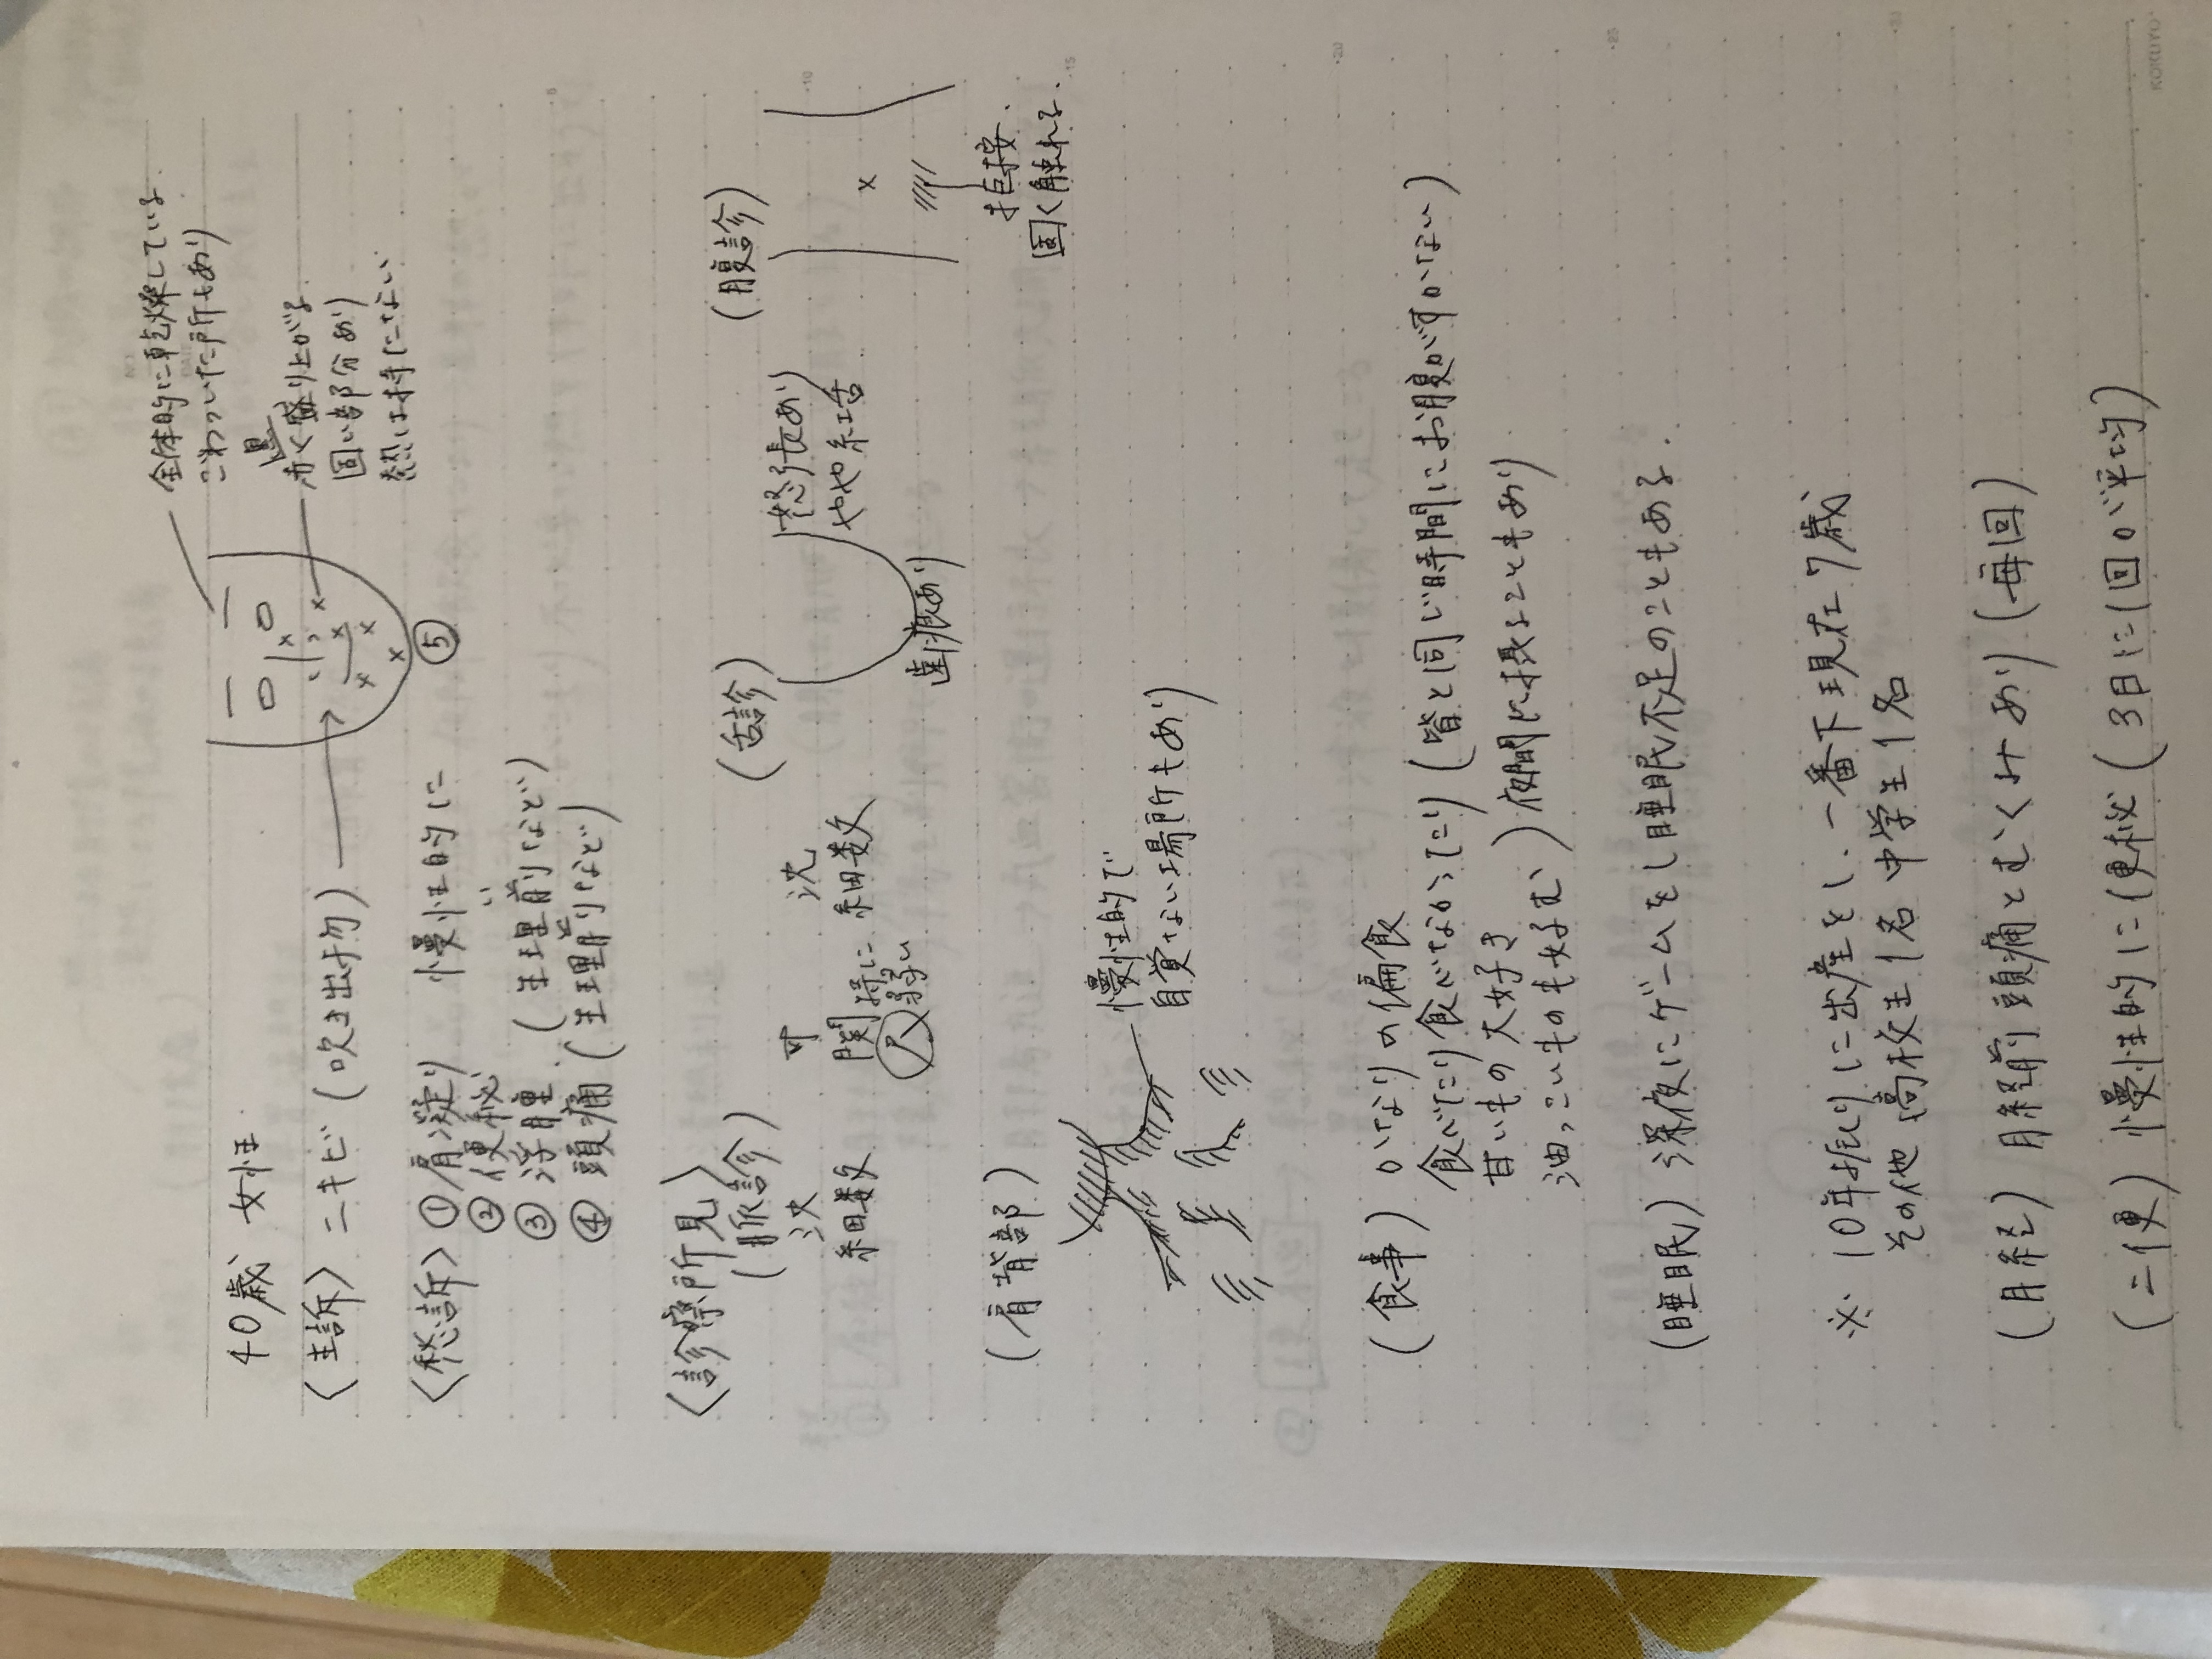 40歳 女性
<主訴> ニキビ (吹き出物)
全体的に乾燥している
ごわついた所もあり
黒
赤く盛り上がる
固い部分あり
熱は特にない
⑤
<愁訴> ①肩凝り 慢性的に
②便秘 〃
③浮腫 (生理前など)
④頭痛 (生理前など)
<診察所見>
(脈診)
沈 寸 沈
細数 関 特に 細数
尺 弱い
(舌診)
怒張あり
やや紅舌
歯痕あり
(腹診)
拒按
固く触れる.
(肩背部)
慢性的で
自覚ない場所もあり
(食事) かなりの偏食
食べたり食べなかったり (皆と同じ時間にお腹がすかない)
甘いもの大好き
油っこいものも好む ) 夜間に摂ることもあり
(睡眠) 深夜にゲームをし睡眠不足のこともある.
※ 10年振りに出産をし、一番下現在7歳
その他 高校生1名 中学生1名
(月経) 月経前 頭痛とむくみあり (毎回)
(二便) 慢性的に便秘 (3日に1回が平均)
KOKUYO